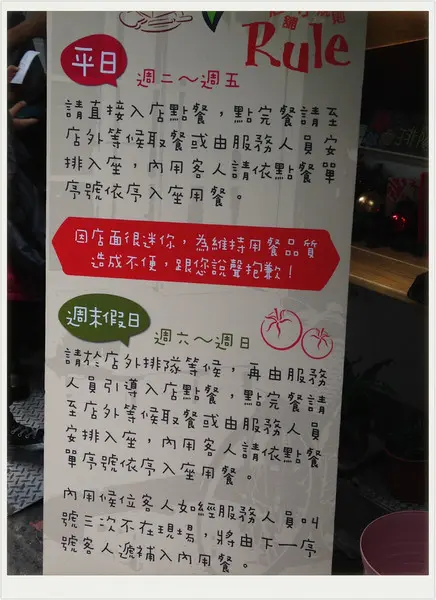 Rule
平日
週二～週五
請直接入店點餐，點完餐請至
店外等候取餐或由服務人員安
排入座，內用客人請依點餐單
序號依序入座用餐。
因店面很迷你，為維持用餐品質
造成不便，跟您說聲抱歉！
週末假日
週六～週日
請於店外排隊等候，再由服務
人員引導入店點餐，點完餐請
至店外等候取餐或由服務人員
安排入座，內用客人請依點餐
單序號依序入座用餐。
內用候位客人如經服務人員叫
號三次不在現場，將由下一序
號客人遞補入內用餐。